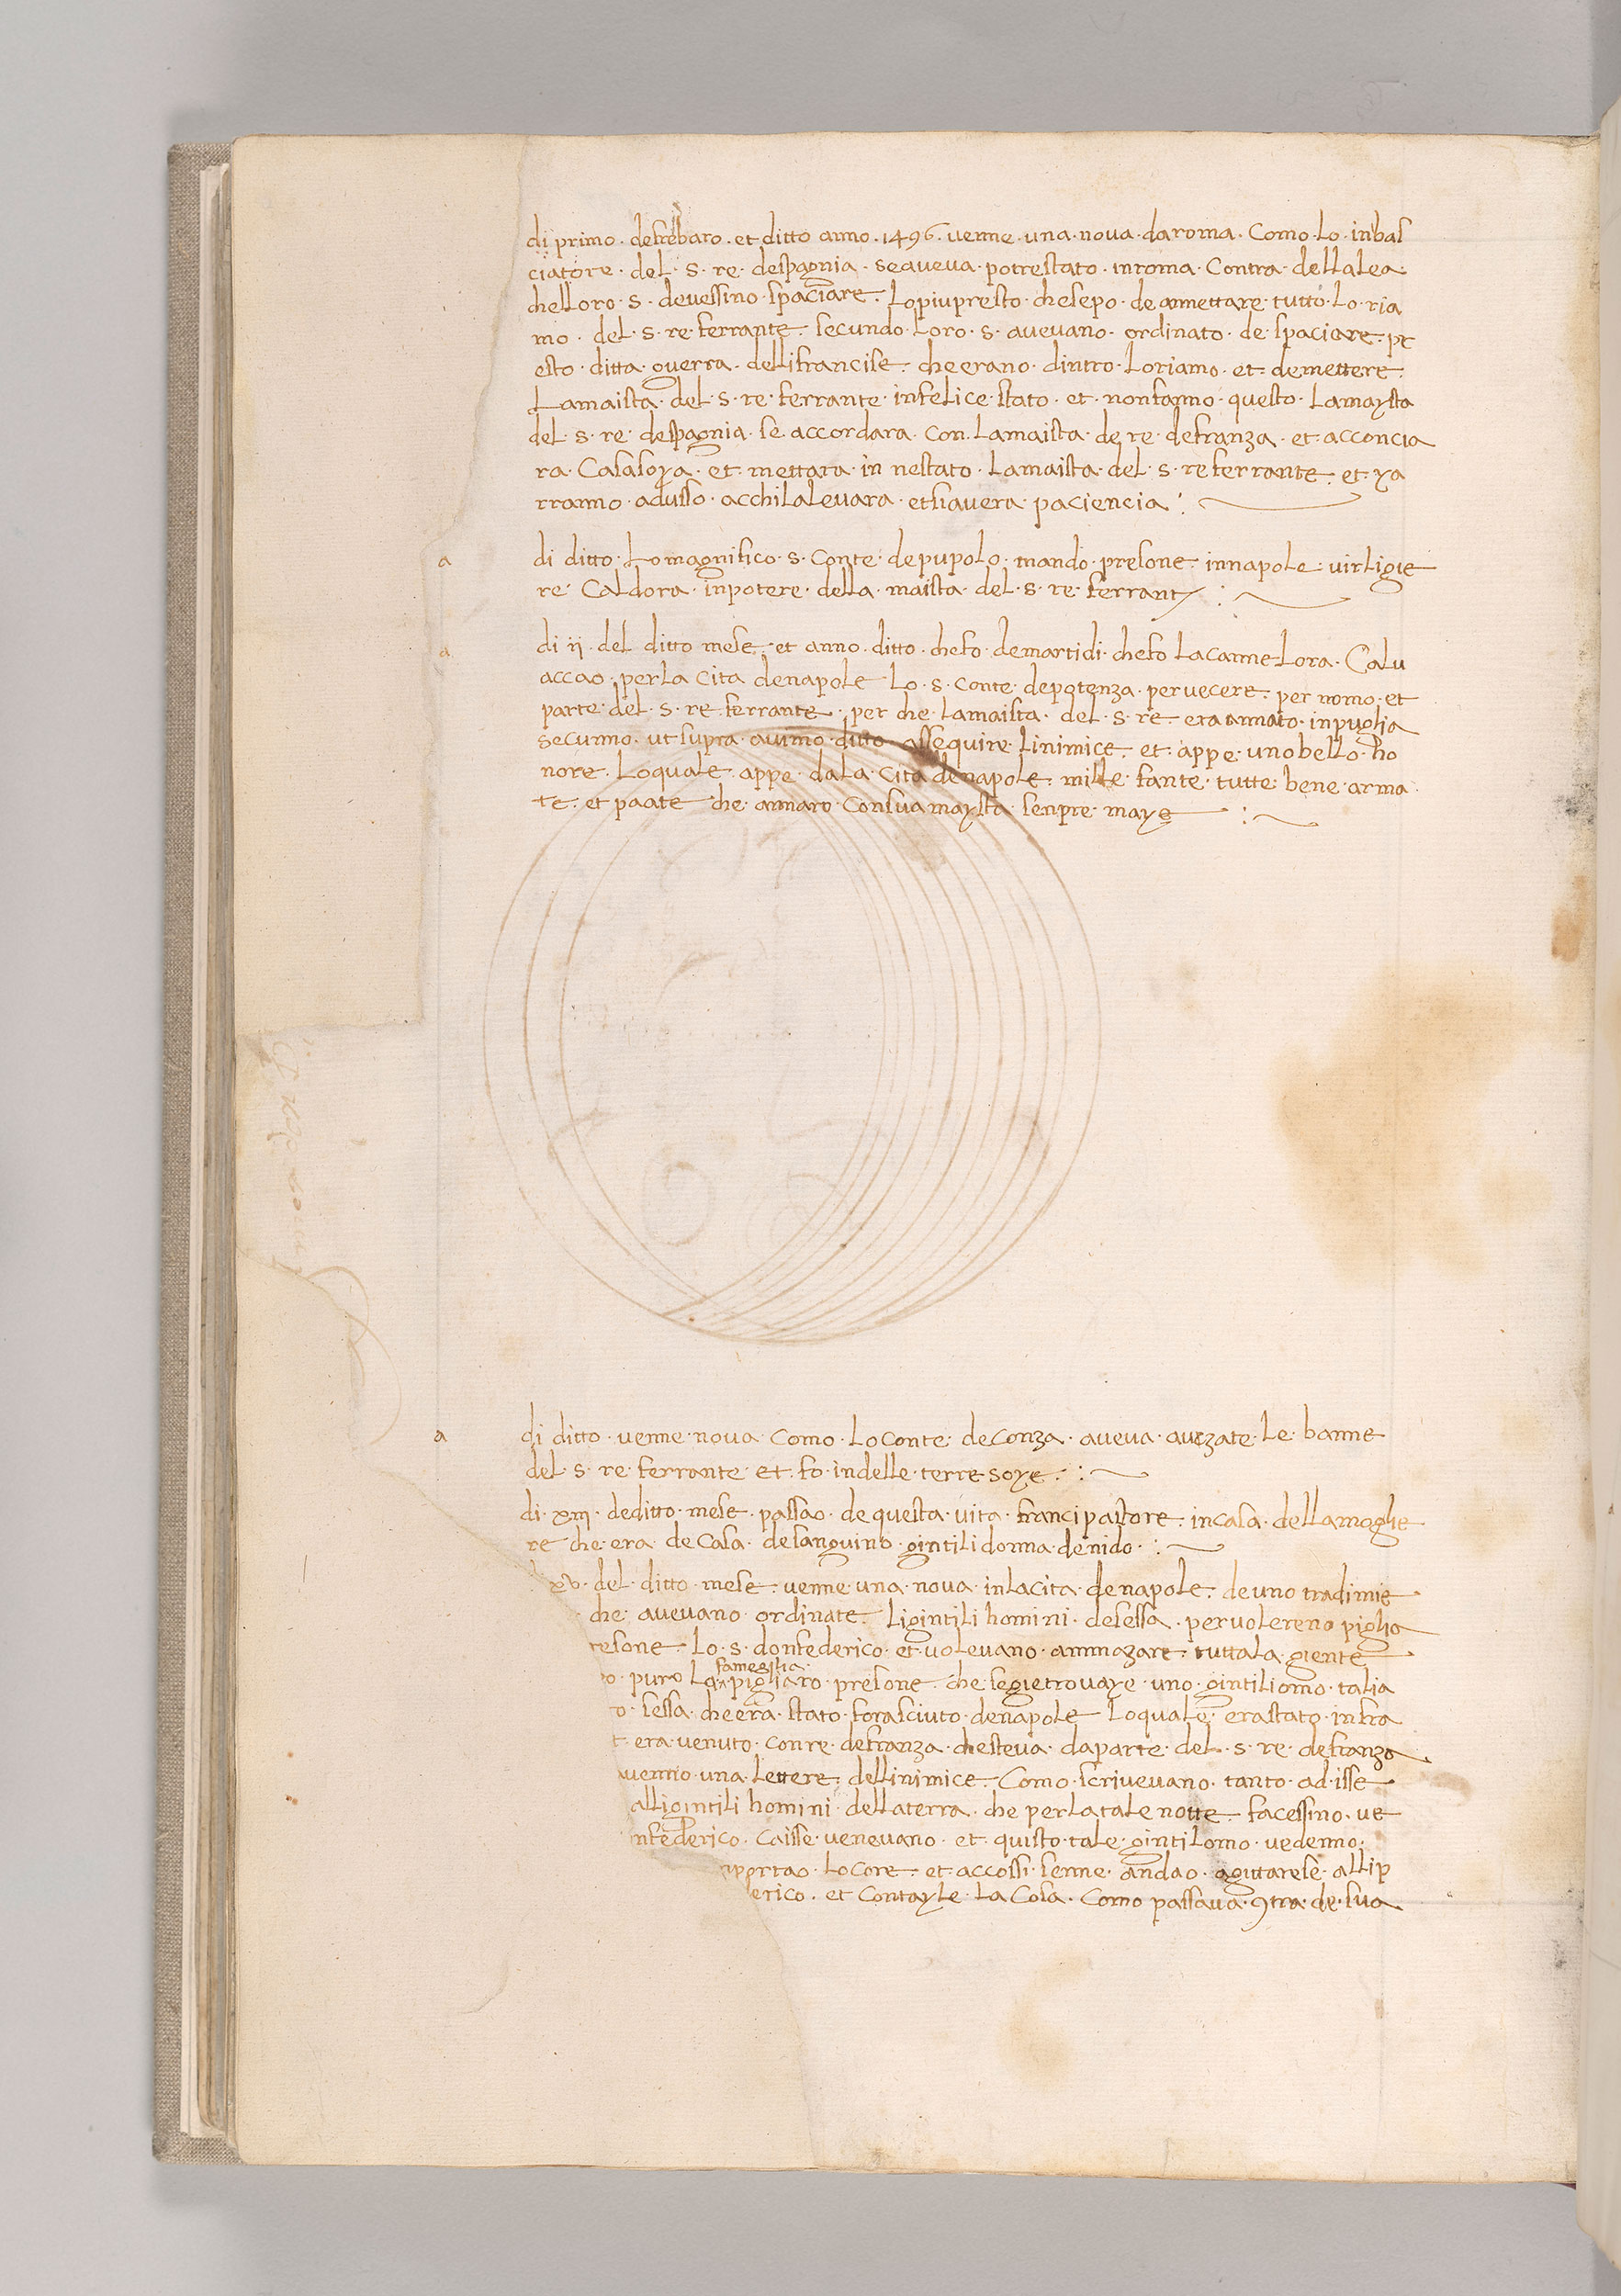 di primo · de frebaro · et ditto anno · 1496 · venne · una · nova · da roma · Como · Lo · inbas
ciatore · del · s · re · despagnia · se aveva · potrestato · in roma · Contra · della lea
che lloro · s · devessino · spaciare · Lo piu presto · che se po · de ammettare · tutto · Lo · ria
mo · del · s · re ferrante · secundo · Loro · s · avevano · ordinato · de · spaciare · pr
esto · ditta · guerra · delli francise · che erano · dintro · Lo riamo · et · de mettere
La maista · del · s · re · ferrante · in felice · stato · et · non fanno · questo · La maysta
del · s · re · despagnia · se · accordara · Con · La maista · de re · de franza · et · acconcia
ra · Casa soya · et · mettara · in nestato · La maista · del · s · re ferrante · et · ya
rranno · adusso · acchi La Levara · et si avera · paciencia :
a di ditto · Lo magnifico · s · Conte · de pupolo · mando · presone · in napole · vir Ligie
re · Caldora · in potere · della · maista · del · s · re · ferrant :
a di ii · del ditto mese · et anno · ditto · che fo · de marti di · che fo La carnne Lora · Calv
accao · per La Cita de napole Lo · s · Conte · de potenza · per vecere · per nomo · et
parte · del · s · re ferrante · per che · La maista · del · s · re · era annato · in puglia
secunno · ut supra · avimo · ditto · assequire · Li nimice · et · appe · uno bello · ho
nore · Lo quale · appe · da La · Cita de napole · mille · fante · tutte · bene · arma
te · et paate che · annaro Con sua maysta · senpre · maye :
a di ditto · venne · nova · Como · Lo Conte · de Conza · aveva · auzate · Le · banne
del · s · re ferrante · et · fo · in delle · terre soye :
di · xiii · de ditto · mese · passao · de questa · vita · franci pastore · in casa · della moglie
re che · era · de Casa · de sanguino · gintili donna · de nido :
xv · del · ditto · mese · venne · una · nova · in La cita · de napole · de uno tradimie
che · avevano · ordinate · Li gintili homini · de sessa · per volereno piglia
resone · Lo · s · don federico · et volevano · ammazare · tutta La · giente
o · puro La famegllia pigliaro · presone · che se gie trovaye · uno · gintili omo · talia
o · sessa · che era · stato · forasciuto · de napole Lo quale · era stato · in fra
t · era · venuto · Con re · de franza · che steva · da parte · del · s · re · de franza
avenno · una · Lettere · delli nimice · Como · scrivevano · tanto · ad · isse
alli gintili homini · della terra · che per La tale notte · facessino · ve
nfederico · Ca isse · venevano · et · quisto · tale · gintilomo · vedenno ·
nportao · Lo core · et accossi · senne · andao · agittarese · alli p
erico · et Contayle · La Cosa · Como passava · 9tra · de · sua